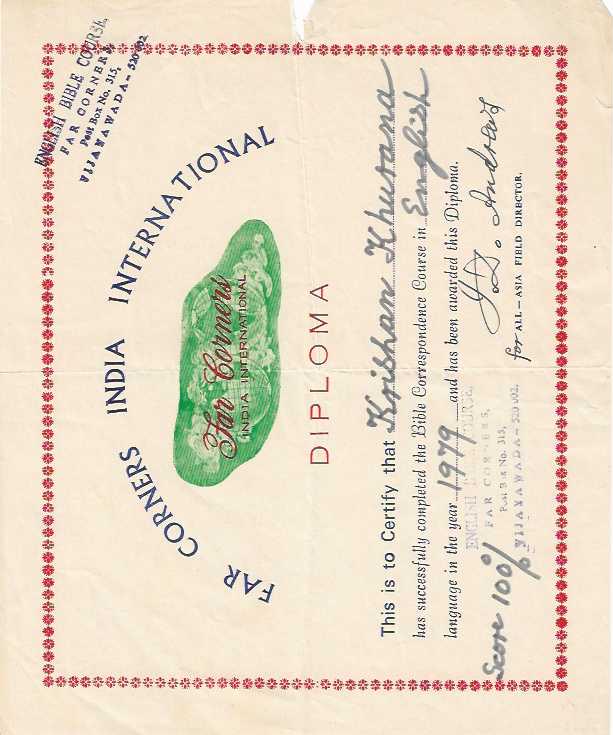 ENGLISH BIBLE COURSE,
FAR CORNERS,
Post Box No. 315,
VIJAYAWADA-520 002.
FAR CORNERS INDIA INTERNATIONAL
Far Corners
INDIA INTERNATIONAL
DIPLOMA
This is to Certify that Krishan Khurana
has successfully completed the Bible Correspondence Course in English
language in the year 1979 and has been awarded this Diploma.
ENGLISH BIBLE COURSE,
FAR CORNERS,
Post Box No. 315,
VIJAYAWADA-520 002.
Score 100%
Y.D. Andrews
for ALL-ASIA FIELD DIRECTOR.